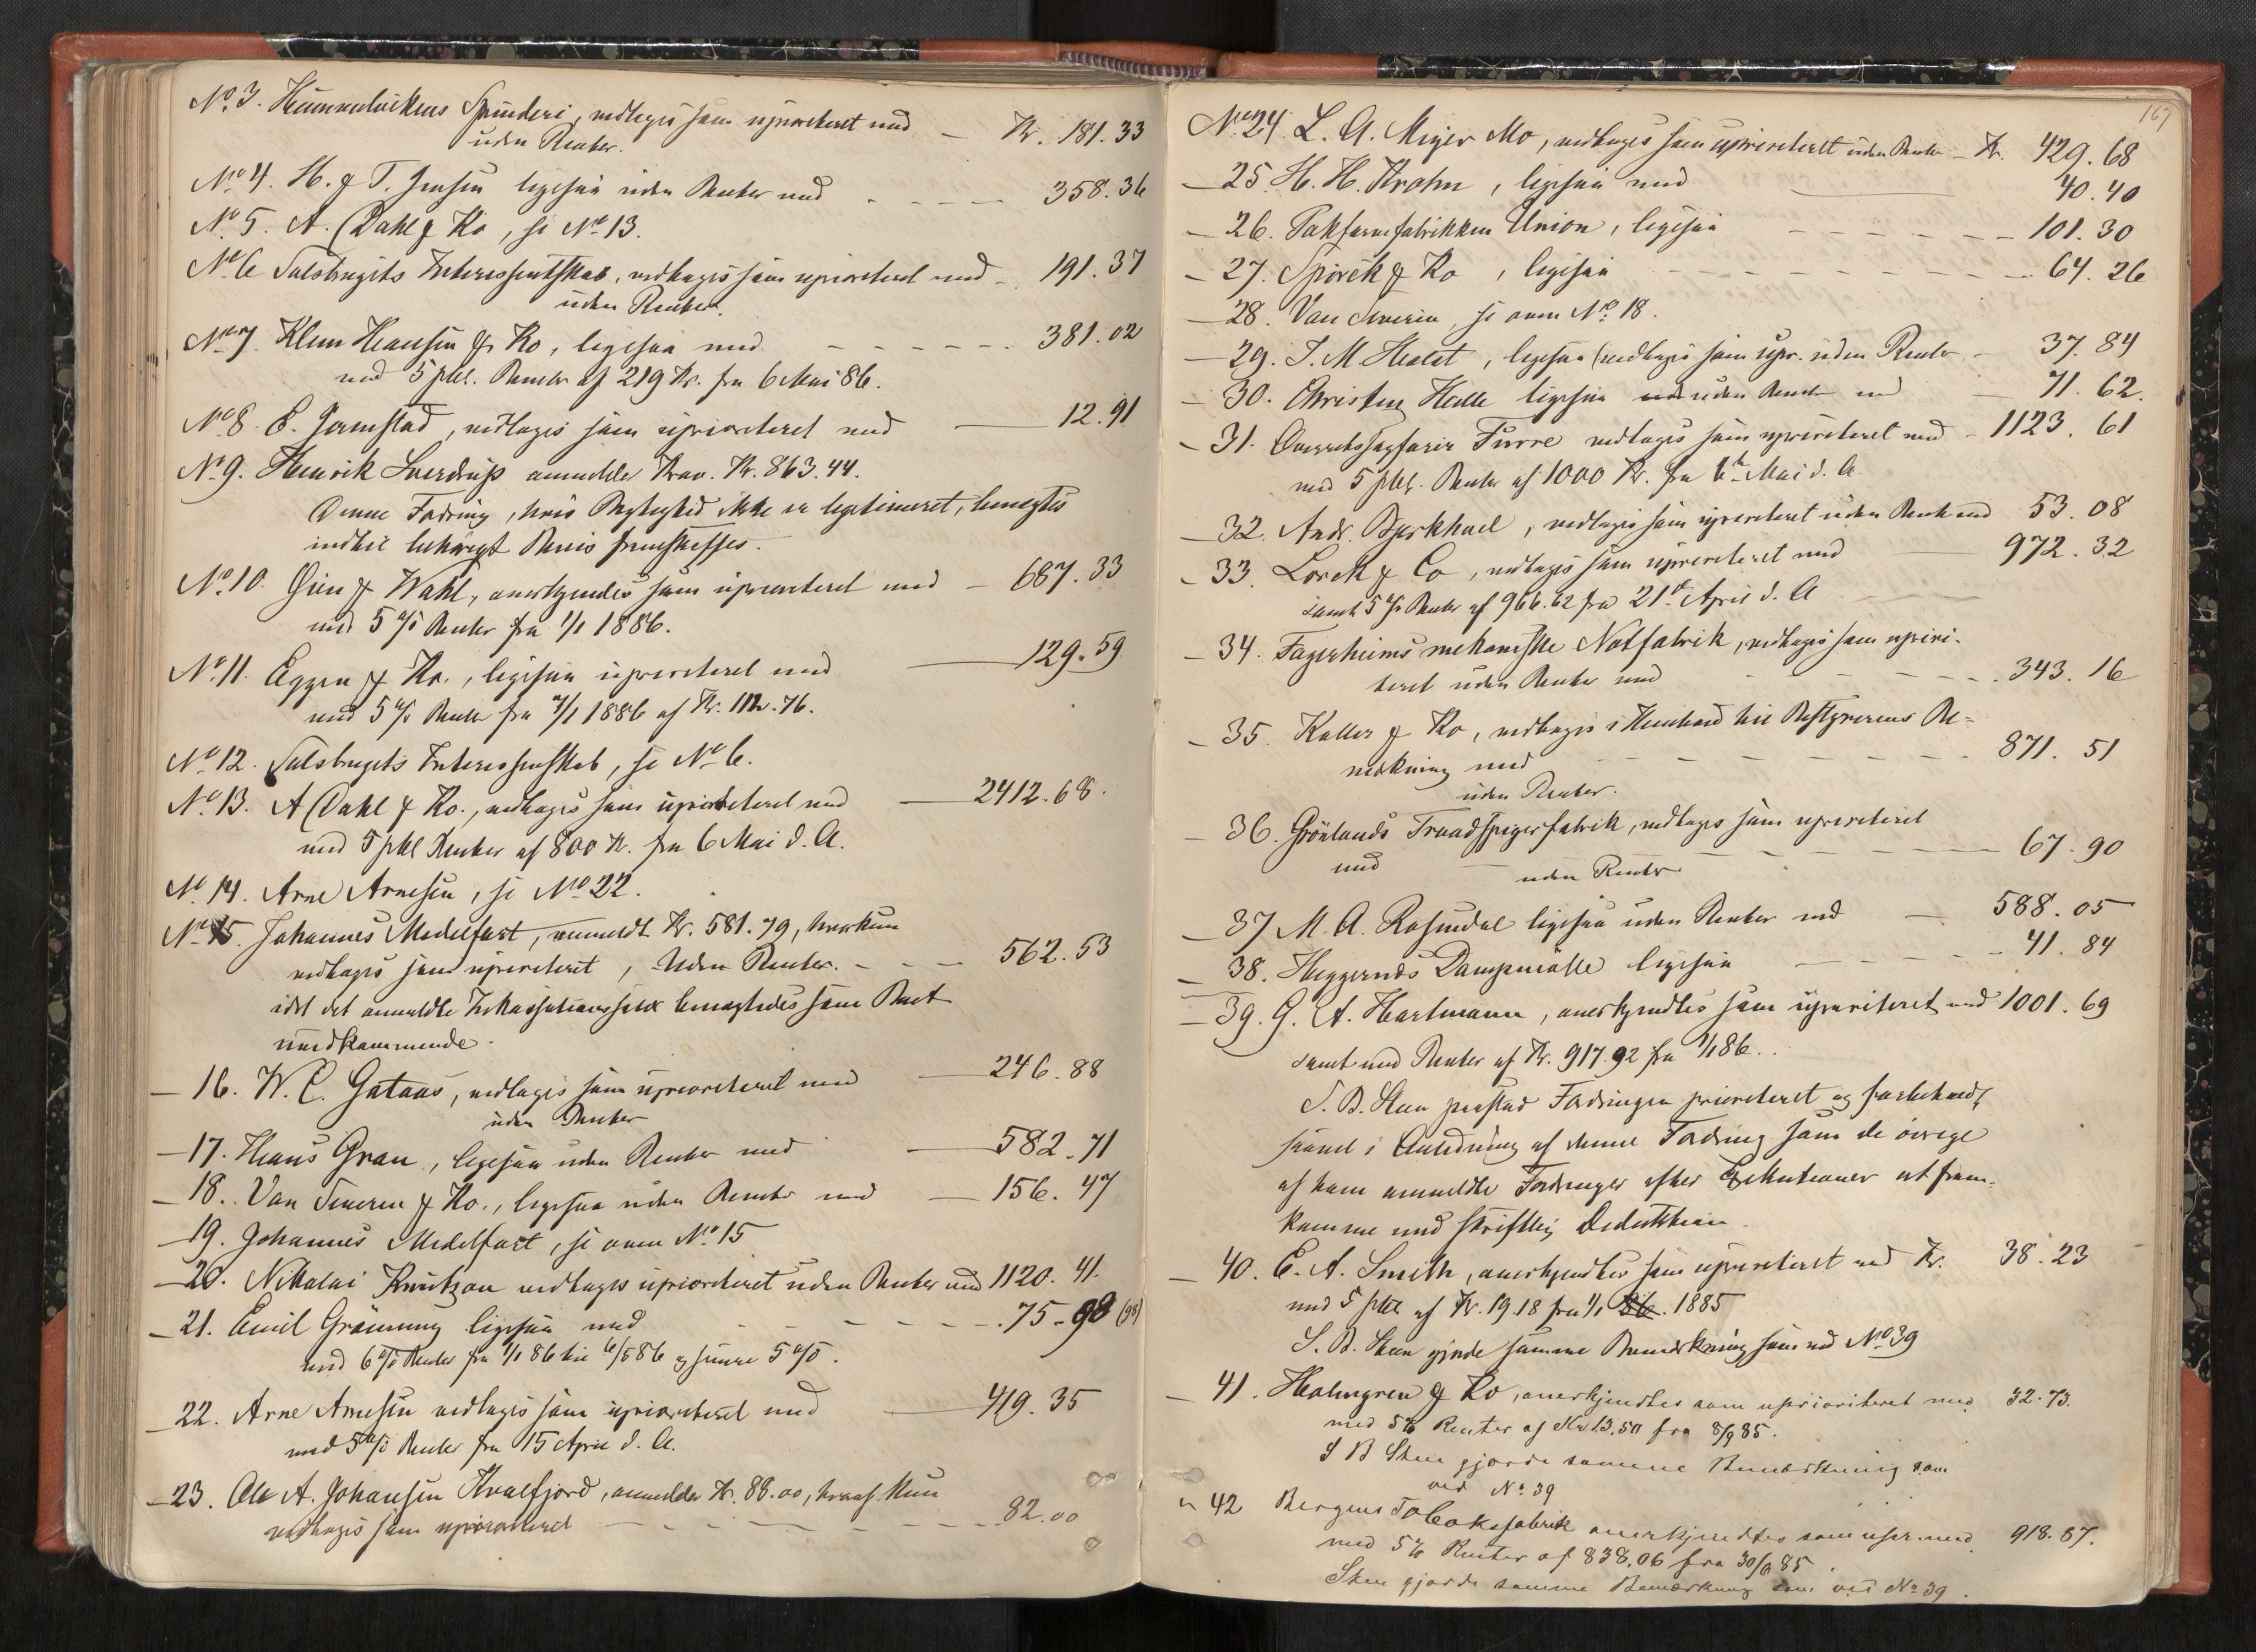 No. 3. Spinderi, vedtages som uprioriteret med — Kr. 181.33
uden Renter.
No. 4. H. & T. Jensen ligesaa uden Renter med - - - - 358.36
No. 5. A. Dahl & Ko, se No. 13.
No. 6 Salsbrugets Interessentskab, vedtages som uprioriteret med - 191.37
uden Renter.
No. 7. Klem Hansen & Ko, ligesaa med - - - - - - 381.02
med 5 pCt. Renter af 219 Kr. fra 6 Mai 86.
No. 8. E. Jamstad, vedtages som uprioriteret med — 12.91
No. 9. Henrik Sverdrup anmeldte Krav. Kr. 863.44.
Denne Fodring, hvis Rigtighed ikke er legitimeret, benegtes
indtil behørigt Bevis fremskaffes.
No. 10. Øien & Wahl, anerkjendes som uprioriteret med — 687.33
med 5 % Renter fra 1/1 1886.
No. 11. Eggen & Ko., ligesaa uprioriteret med — 129.59
med 5 % Renter fra 1/1 1886 af Kr. 112.76.
No. 12. Salsbrugets Interessentskab, se No. 6.
No. 13. A Dahl & Ko., vedtages som uprioriteret med — 2412.68.
med 5 pCt Renter af 800 Kr. fra 6 Mai d. A.
No. 14. Arne Arnesen, se No. 22.
No. 15. Johannes Medelfart, anmeldt Kr. 581.79, hvorkun
vedtages som uprioriteret, Uden Renter. - - - 562.53
idet det anmeldte Inkassationssalær benægtedes som Boet
uvedkommende.
— 16. W. C. Gataas, vedtages som uprioriteret med — 246.88
uden Renter
— 17. Hans Gran, ligesaa uden Renter med — 582.71
— 18. Van Severen & Ko., ligesaa uden Renter med — 156.47
— 19. Johannes Medelfart, se oven No. 15
— 20. Nikolai Knutzon vedtages uprioriteret uden Renter med 1120.41.
— 21. Emil Grönning ligesaa med - - - - - - 75-98 (98)
med 6 % Renter fra 1/1 86 til 6/5 86 og senere 5 %.
— 22. Arne Arnesen vedtages som uprioriteret med — 419.35
med 5 % Renter fra 15 April d. A.
— 23. Ole A. Johansen Kvalfjord, anmeldte Kr. 88.00, hvoraf kun
vedtages som uprioriteret - - - - - - - 82.00
167
No. 24. L. A. Meyer Mo, vedtages som uprioriteret uden Renter — Kr. 429.68
— 25. H. H. Krohn, ligesaa med — 40.40
— 26. Fabrikken Union, ligesaa - - - - - - 101.30
— 27. Spörck & Ko, ligesaa - - - - - - - - - 64.26
— 28. Van Severen, se oven No. 18.
— 29. J. M Holst, ligesaa (vedtages som upr. uden Renter — 37.84
— 30. Christen Halle ligesaa uden Renter med — 71.62.
— 31. Overretssagfører Furre vedtages som uprioriteret med — 1123.61
med 5 pCt. Renter af 1000 Kr. fra 6te Mai d. A.
— 32. Andr. Bjerkhoel, vedtages som uprioriteret uden Rente med 53.08
— 33. Lorck & Co, vedtages som uprioriteret med — 972.32
samt 5 % Renter af 966.62 fra 21de April d. A
— 34. Fagerheims mekaniske Notfabrik, vedtages som upriori-
teret uden Renter med - - - - - - 343.16
— 35. Kaller & Ko, vedtages i Henhold til Bestyrerens Be-
mærkning med - - - - - - - - 871.51
uden Renter.
— 36. Grönlands Traadspigerfabrik, vedtages som uprioriteret
med — uden Renter - - - - 67.90
— 37 M. A. Rosendal ligesaa uden Renter med — 588.05
— 38. Heggernæs Dampmølle ligesaa - - - - - 41.84
— 39. G. A. Hartmann, anerkjendtes som uprioriteret med 1001.69
samt med Renter af Kr. 917.92 fra 1/1 86.
S. B. Sken paastod Fordringen prioriteret og forbeholdt
saavel i Anledning af denne Fodring som de øvrige
af ham anmeldte Fordringer efter Exekutioner at frem-
komme med skriftlig Deduktion.
— 40. E. A. Smith, anerkjendtes som uprioriteret med Kr. 38.23
med 5 pCt af Kr. 19.18 fra 1/1 86. 1885
S. B. Sken gjorde samme Bemærkning som ved No. 39
— 41. Holmgren & Ko, anerkjendtes som uprioriteret med 32.73.
med 5 % Renter af Kr 13,50 fra 8/9 85.
S B Sken gjorde samme Bemærkning som
ved No. 39
" 42 Bergens Tobaksfabrik anerkjendtes som upr. med 918.87.
med 5 % Renter af 838.06 fra 30/6 85.
Sken gjorde samme Bemærkning som ved No. 39.